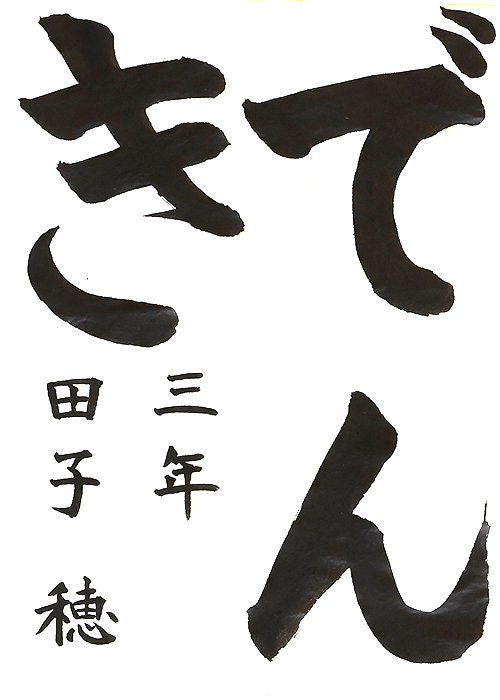 でん
き
三年
田子 穂